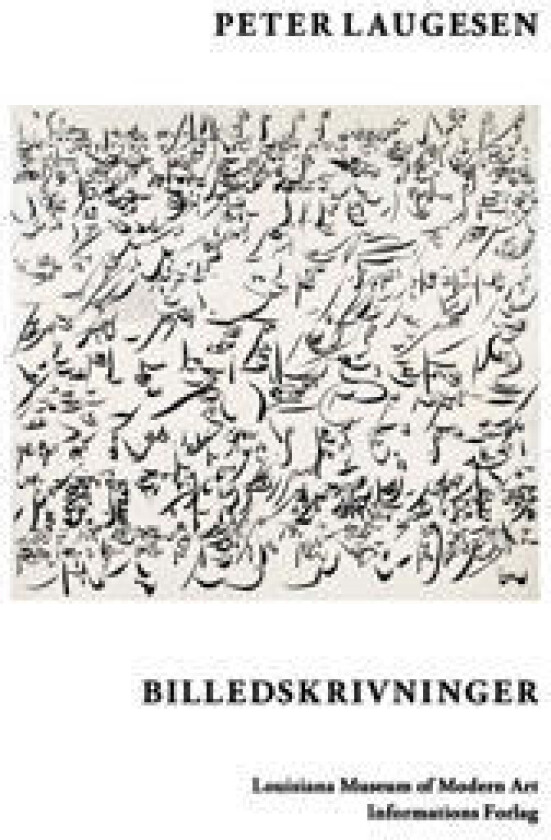 PETER LAUGESEN
BILLEDSKRIVNINGER
Louisiana Museum of Modern Art
Informations Forlag